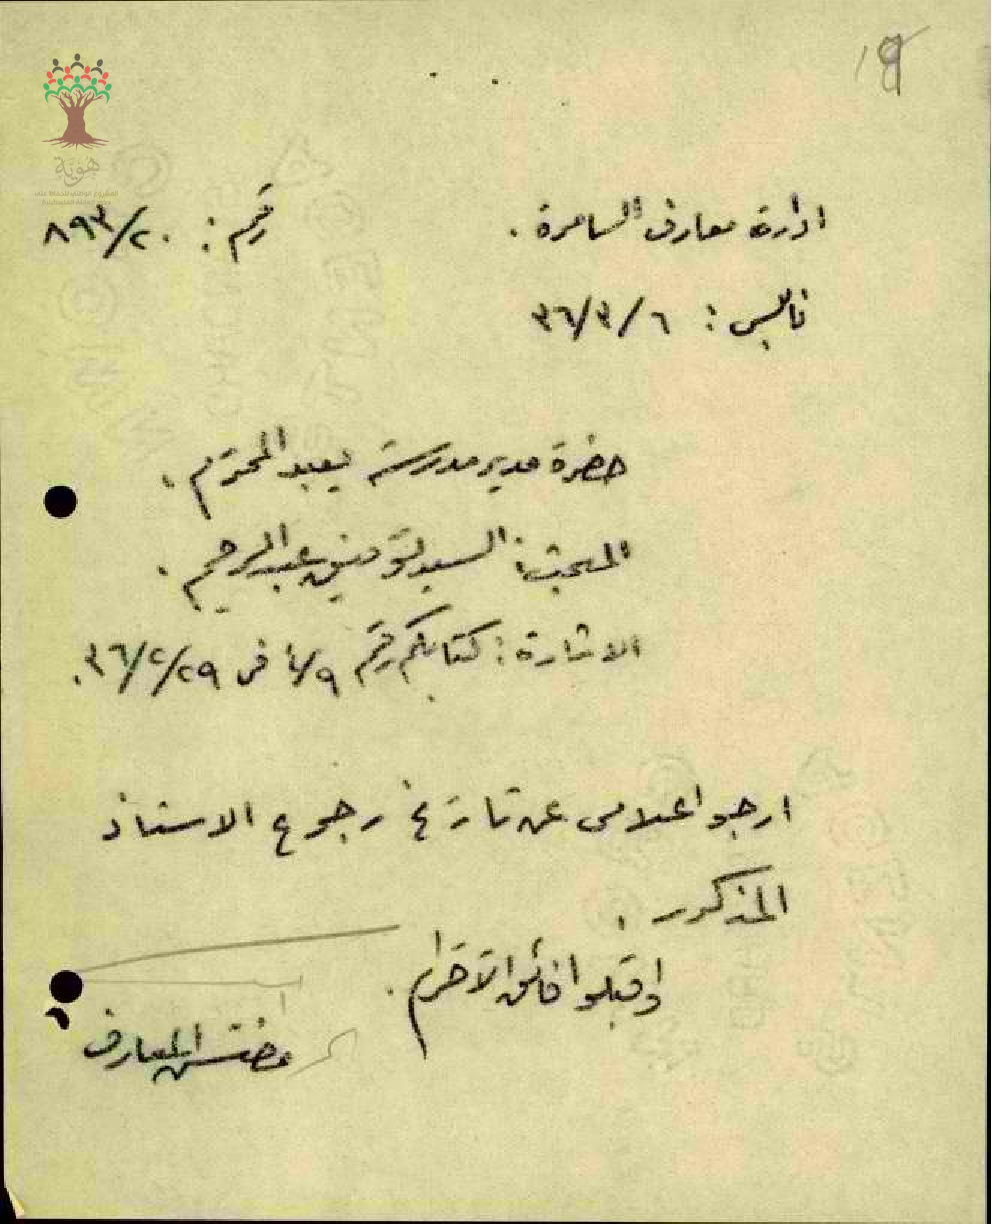 19
هوية
ادارة معارف السامرة . رقم : ٨٩٣/٢٠
نابلس : ٣٦/٣/٦
حضرة مدير مدرسة يعبد المحترم .
المبحث : السيد توفيق عبد الرحيم .
الاشارة : كتابكم رقم ٤/٩ في ٣٦/٢/٢٩ .
ارجو اعلامي عن تاريخ رجوع الاستاذ
المذكور .
واقبلوا فائق الاحترام .
مفتش المعارف